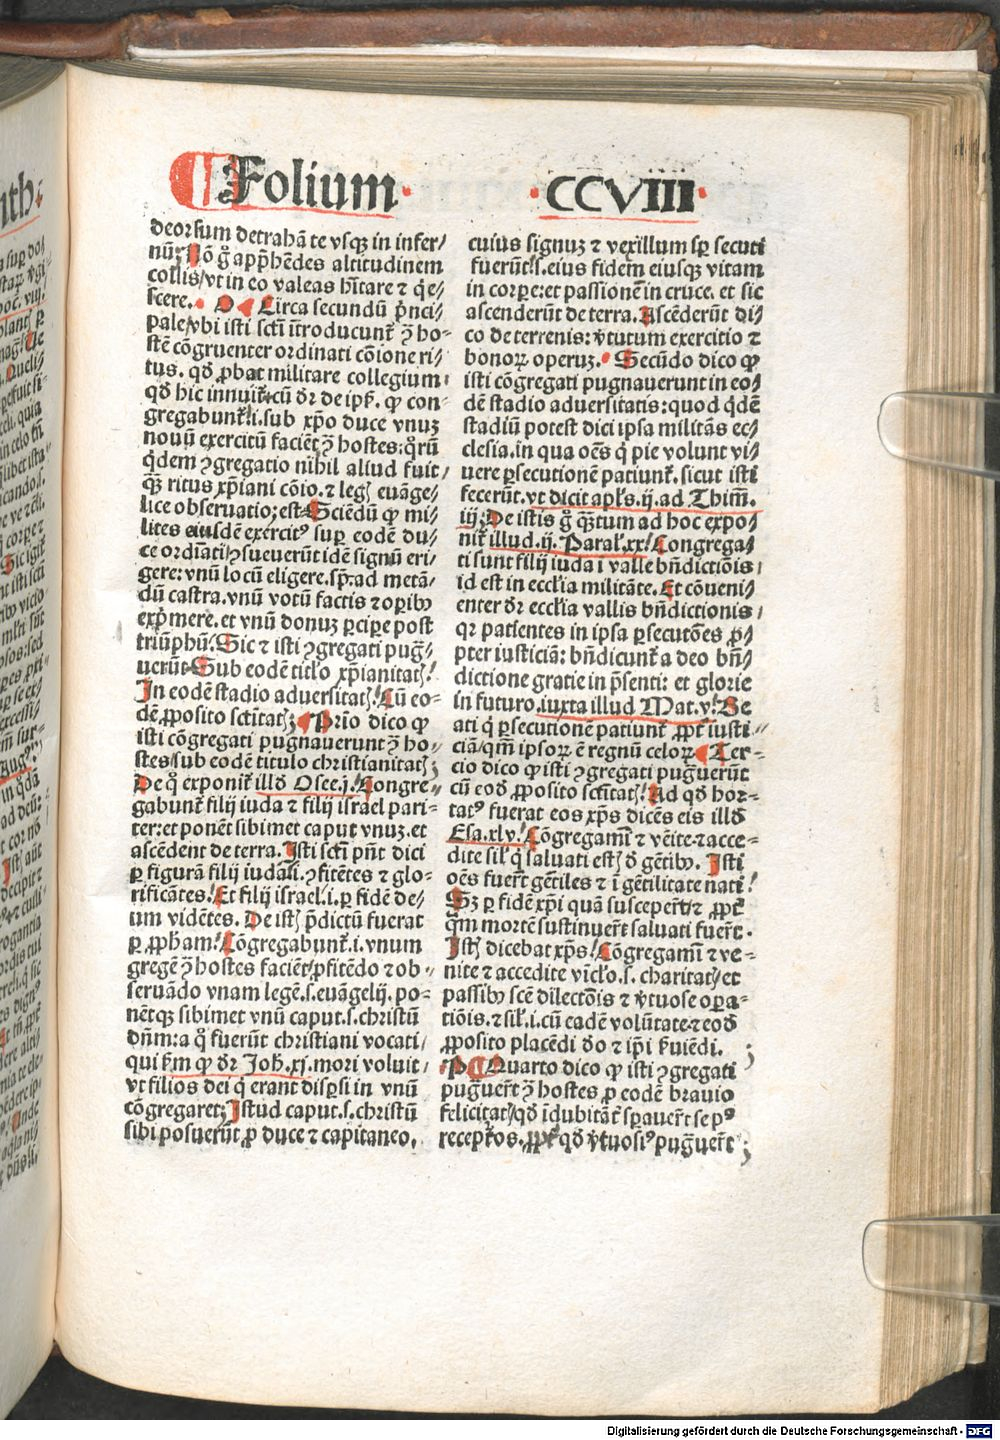 Folium · CCVIII ·
deorsum detrahāt te vsqz in infer/
nū; Nō g̊ app̄hēdes altitudinem
collis/vt in eo valeas hītare ⁊ q̇e/
scere. Circa secundū p̄nci/
pale/vbi isti scti ītroducunt̄ ꝯ̄ ho-
stē cōgruenter ordinati cōione ri/
tus. qd̄ ꝓbat militare collegium.
qd̄ hic innuit̄ cū dr̄ de ip̄s. ꝙ con
gregabunt̄.i. sub xp̄o duce vnuz
nouū exercitū faciēt ꝯ̄ hostes: q̇rū
q̇dem ꝯgregatio nihil aliud fuit/
qz̄ ritus xp̄iani cōio. ⁊ legꝭ euāge/
lice obseruatio; est. Sciēdū ꝙ mi/
lites eiusdē exercitꝰ sup̄ eodē du/
ce ordīati ꝯsueuerūt idē signū eri/
gere: vnū locū eligere. sp̄. ad metā/
dū castra. vnū votū factis ⁊ oꝑibꝰ
exp̄mere. et vnū donuz ꝑciꝑe post
triūphū. Sic ⁊ isti ꝯgregati puḡ/
uerūt Sub eodē titlo xp̄ianitatꝭ!
In eodē stadio aduersitatꝭ! Cū eo-
dē ꝓposito sctitatꝭ; Prīo dico ꝙ
isti cōgregati pugnauerunt ꝯ̄ ho/
stes/sub eodē titulo christianitatꝭ;
De q̊ exponit̄ illd̄ Osee.j.! Congre/
gabunt̄ filij iuda ⁊ filij israel pari-
ter: et ponēt sibimet caput vnuz. et
ascēdent de terra. Isti scti pn̄t dici
ꝑ figurā filij iuda.i. ꝯfitētes ⁊ glo-
rificātes! Et filij israel.i. ꝑ fidē de/
um vidētes. De istꝭ p̄dictū fuerat
ꝑ ꝓpham! Cōgregabunt̄.i. vnum
gregē ꝯ̄ hostes faciēt/ꝓfitēdo ⁊ ob/
seruādo vnam legē.s. euāgelij. po-
nētqz sibimet vnū caput.s. christū
dn̄m: a q̊ fuerūt christiani vocati/
qui f̄m ꝙ dr̄ Joh̄.xj. mori voluit/
vt filios dei q̇ erant disꝑsi in vnū
cōgregaret; Istud caput.s. christū
sibi posuerūt ꝓ duce ⁊ capitaneo.
cuius signuz ⁊ vexillum sp̄ secuti
fuerūt/s. eius fidem eiusqz vitam
in corpe: et passionē in cruce. et sic
ascenderūt de terra. Ascēderūt di/
co de terrenis: v̄tutum exercitio ⁊
bonoꝝ operuz. Secūdo dico ꝙ
isti cōgregati pugnauerunt in eo/
dē stadio aduersitatis: quod q̇dē
stadiū potest dici ipsa militās ec/
clesia. in qua oēs q̇ pie volunt vi/
uere ꝑsecutionē patiunt̄. sicut isti
fecerūt. vt dicit apl̄s.ij. ad Thim̄.
iij; De istis g̊ qz̄tum ad hoc expo/
nit̄ illud.ij. Paral̄.xx! Congrega/
ti sunt filij iuda ī valle bn̄dictiōis/
id est in ecclīa militāte. Et cōueni/
enter dr̄ ecclīa vallis bn̄dictionis/
qꝛ patientes in ipsa ꝑsecutōes ꝓ/
pter iusticiā: bn̄dicunt̄ a deo bn̄/
dictione gratie in p̄senti: et glorie
in futuro. iuxta illud Mat.v! Be
ati q̇ ꝑsecutionē patiunt̄ ꝓpt̄ iusti
ciā/qm̄ ipsoꝝ ē regnū celoꝝ Ter-
cio dico ꝙ isti ꝯgregati puḡuerūt
cū eod̄ ꝓposito sctitatꝭ! Ad qd̄ hor-
tatꝰ fuerat eos xp̄s dicēs eis illd̄
Esa.xlv! Cōgregamī ⁊ vēite ⁊ acce-
dite sil̄ q̇ saluati estꝭ d̄ gētibꝰ. Isti
oēs fuer̄t gētiles ⁊ ī gētilitate nati!
Sz ꝑ fidē xp̄i quā susceper̄t/⁊ ꝓpt̄
q̄m mortē sustinuer̄t saluati fuer̄t.
Istꝭ dicebat xp̄s! Cōgregamī ⁊ ve-
nite ⁊ accedite vīcl̄o.s. charitatꝭ/et
passibꝰ scē dilectōis ⁊ v̄tuose oꝑa-
tiōis. ⁊ sil̄.i. cū eadē volūtate ⁊ eod̄
ꝓposito placēdi d̄o ⁊ ip̄i s̄uiēdi.
Quarto dico ꝙ isti ꝯgregati
puḡuer̄t ꝯ̄ hostes ꝓ eodē brauio
felicitatꝭ/qd̄ īdubitāt̄ sꝑauer̄t se ꝑꝰ
recept̄os. ꝓpt̄ qd̄ v̄tuosiꝰ puḡuer̄t;
Digitalisierung gefördert durch die Deutsche Forschungsgemeinschaft - DFG